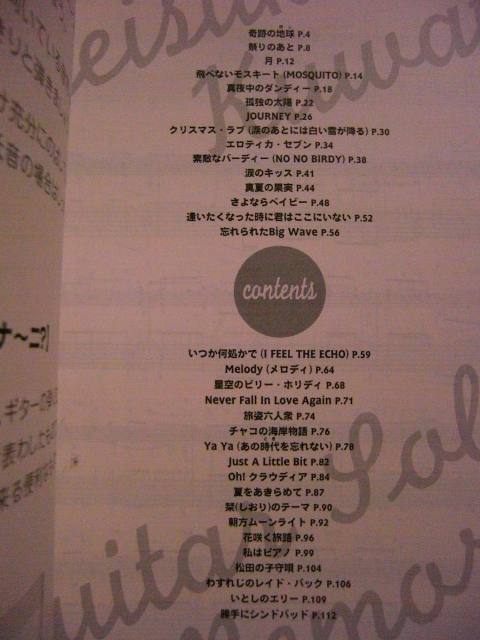 奇跡の地球 P.4
祭りのあと P.8
月 P.12
飛べないモスキート (MOSQUITO) P.14
真夜中のダンディー P.18
孤独の太陽 P.22
JOURNEY P.26
クリスマス・ラブ (涙のあとには白い雪が降る) P.30
エロティカ・セブン P.34
素敵なバーディー (NO NO BIRDY) P.38
涙のキッス P.41
真夏の果実 P.44
さよならベイビー P.48
逢いたくなった時に君はここにいない P.52
忘れられたBig Wave P.56
contents
いつか何処かで (I FEEL THE ECHO) P.59
Melody (メロディ) P.64
星空のビリー・ホリディ P.68
Never Fall In Love Again P.71
旅姿六人衆 P.74
チャコの海岸物語 P.76
Ya Ya (あの時代を忘れない) P.78
Just A Little Bit P.82
Oh! クラウディア P.84
夏をあきらめて P.87
栞(しおり)のテーマ P.90
朝方ムーンライト P.92
花咲く旅路 P.96
私はピアノ P.99
松田の子守唄 P.104
わすれじのレイド・バック P.106
いとしのエリー P.109
勝手にシンドバッド P.112